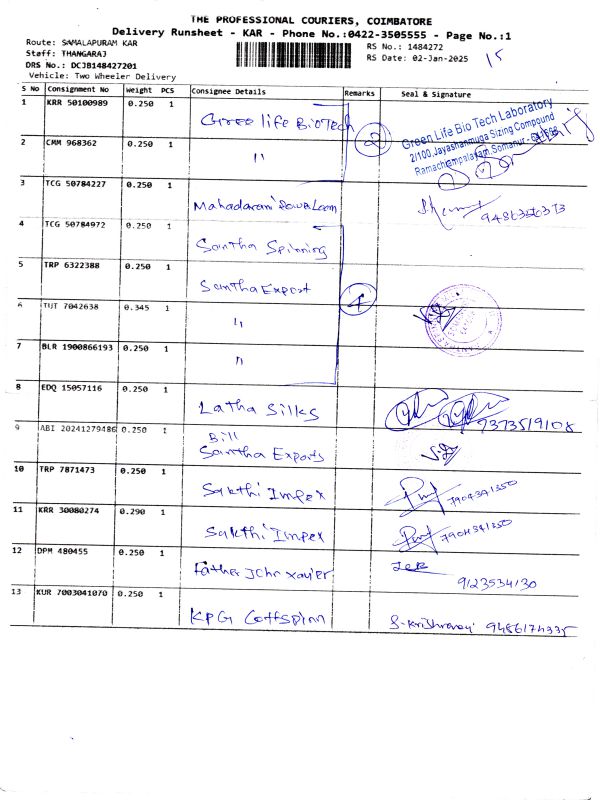 THE PROFESSIONAL COURIERS, COIMBATORE
Delivery Runsheet - KAR - Phone No.:0422-3505555 - Page No.:1
Route: SAMALAPURAM KAR
RS No.: 1484272
Staff: THANGARAJ
RS Date: 02-Jan-2025
15
DRS No.: DCJB148427201
Vehicle: Two Wheeler Delivery
S No Consignment No Weight PCS Consignee Details Remarks Seal & Signature
1 KRR 50100989 0.250 1 Green life BioTech
2
Green Life Bio Tech Laboratory
2/100, Jayashanmuga Sizing Compound
Ramachiampalayam, Somanur
2 CMM 968362 0.250 1 "
3 TCG 50784227 0.250 1 9486356373
4 TCG 50784972 0.250 1 Santha Spinning
5 TRP 6322388 0.250 1 Santha Export
4
6 TUT 7042638 0.345 1 "
7 BLR 1900866193 0.250 1 "
8 EDQ 15057116 0.250 1 Latha Silks 9373519108
9 ABI 20241279486 0.250 1 Bill
Santha Exports
10 TRP 7871473 0.250 1 Sakthi Impex 7904341350
11 KRR 30080274 0.290 1 Sakthi Impex 7904341350
12 DPM 480455 0.250 1 Father John Xavier 9123534130
13 KUR 7003041070 0.250 1 KPG Cottspinn 9486174335